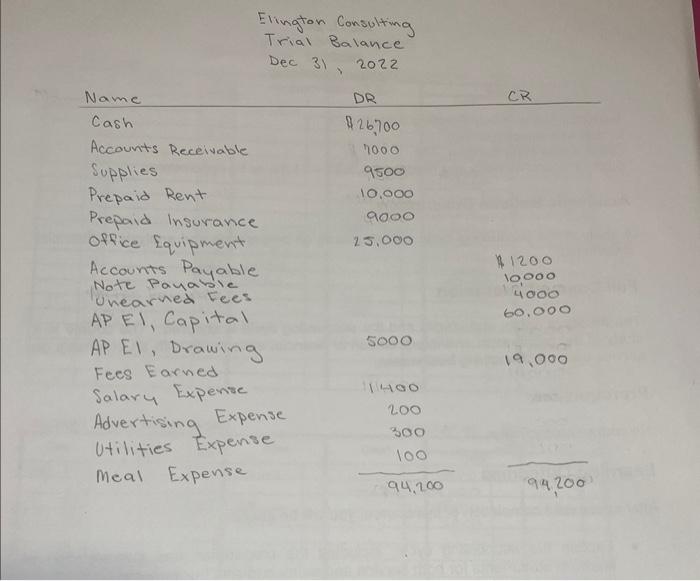 Elington Consulting
Trial Balance
Dec 31, 2022
Name DR CR
Cash $26,700
Accounts Receivable 7000
Supplies 9500
Prepaid Rent 10,000
Prepaid Insurance 9000
Office Equipment 25,000
Accounts Payable $1200
Note Payable 10,000
Unearned Fees 4000
AP El, Capital 60,000
AP El, Drawing 5000
Fees Earned 19,000
Salary Expense 1400
Advertising Expense 200
Utilities Expense 300
Meal Expense 100
94,200 94,200